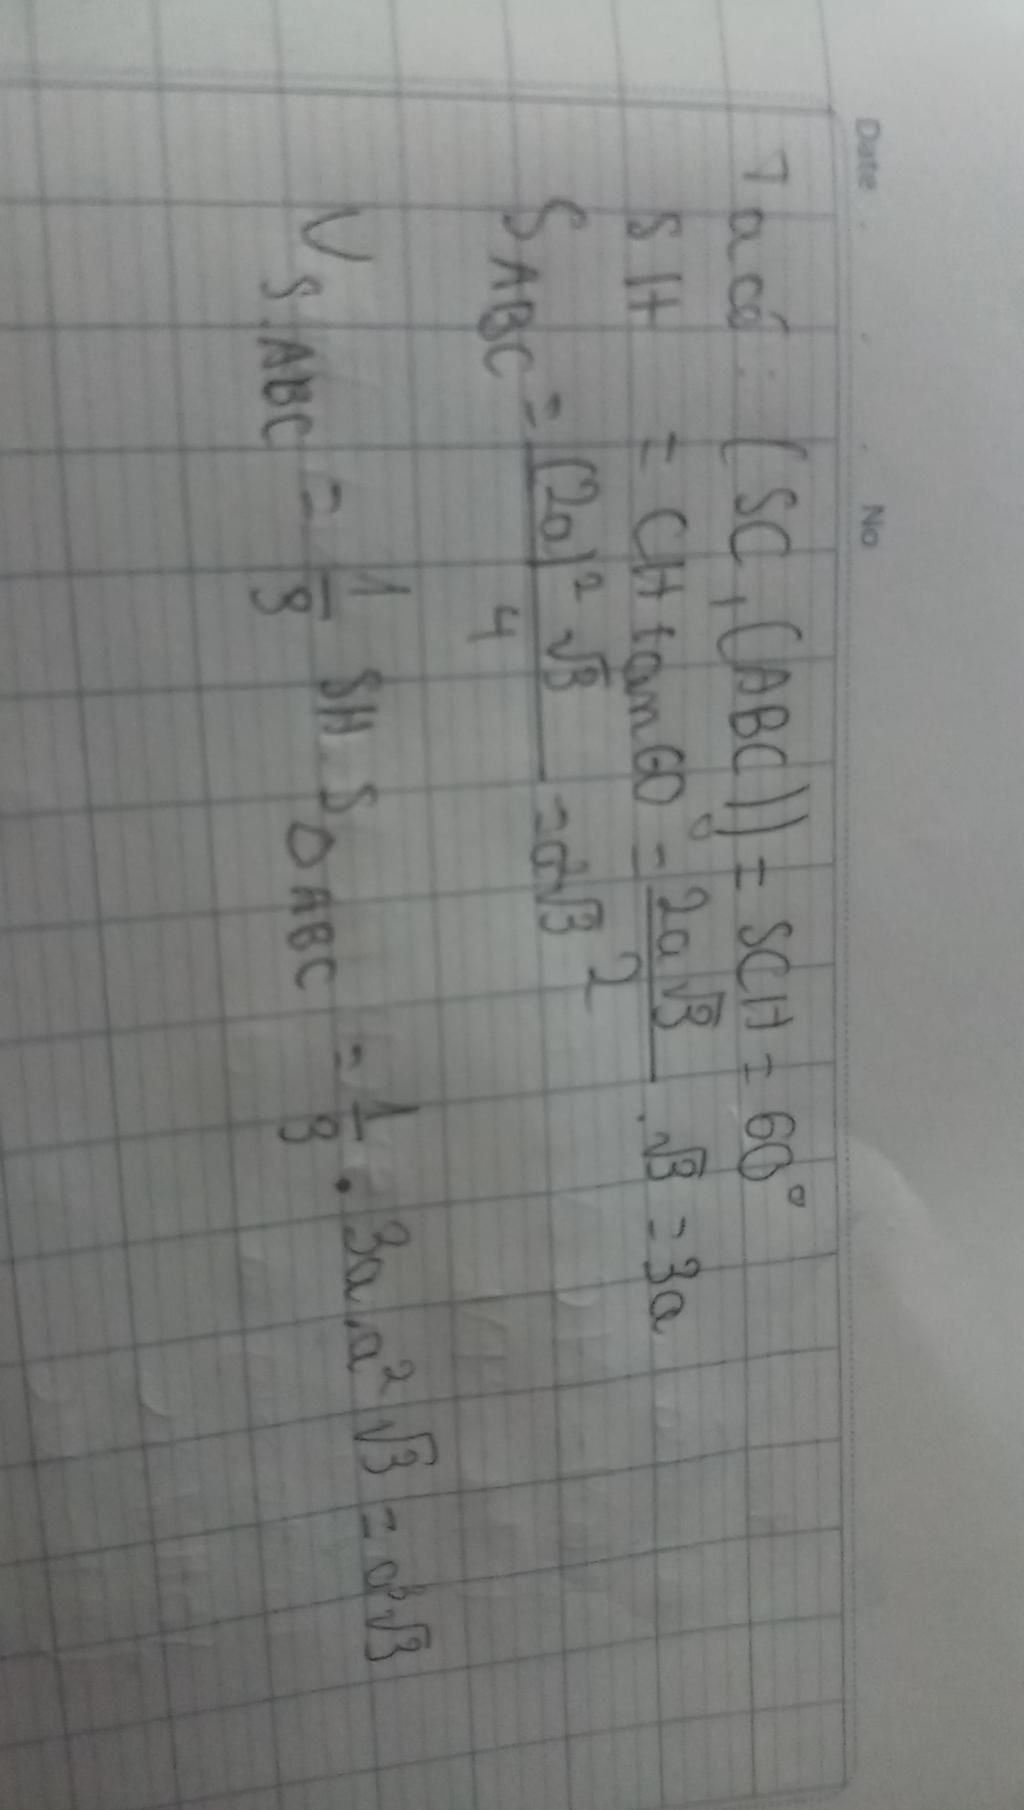 Date No
Ta có: (SC, (ABC)) = SCH = 60°
SH = CH tan60° = 2a√3/2 . √3 = 3a
S ABC = (2a)² √3/4 = a²√3
V S.ABC = 1/3 SH . S Δ ABC = 1/3 . 3a . a² √3 = a³√3